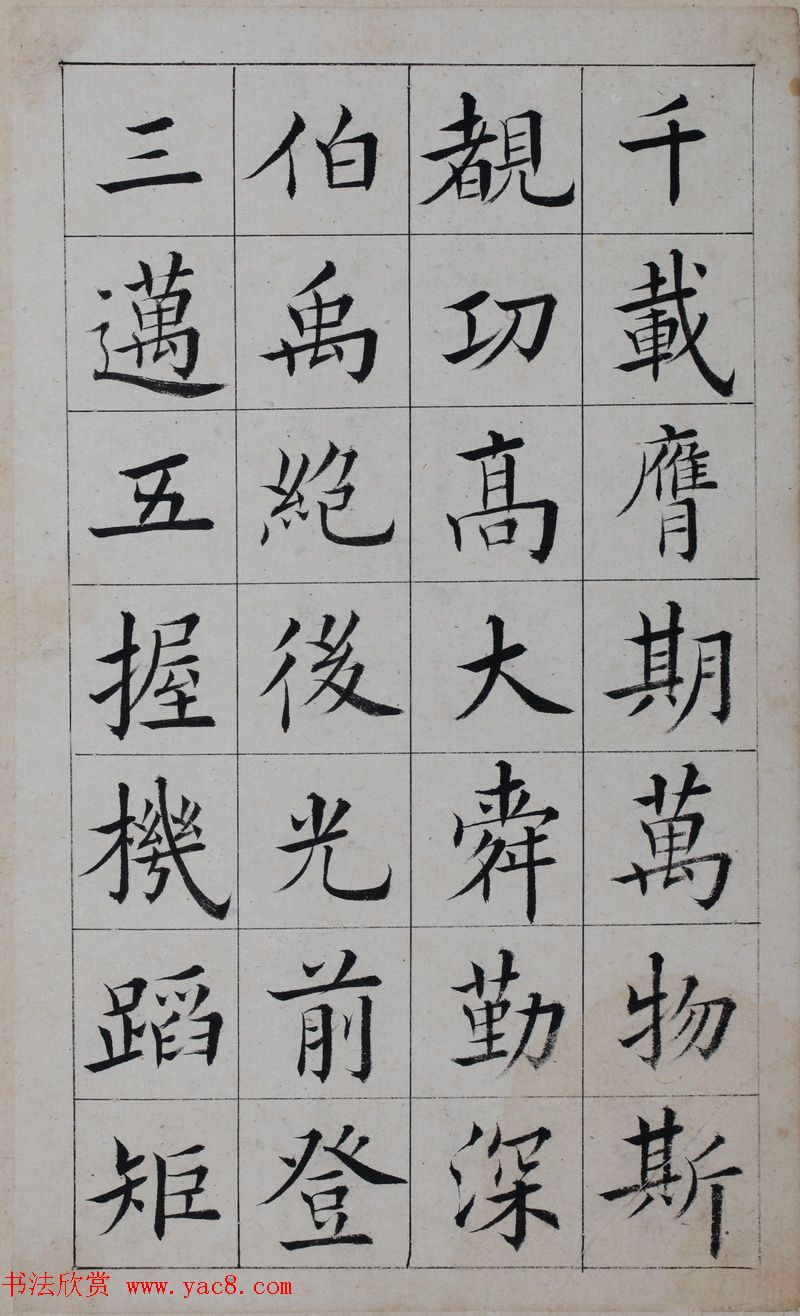 千載膺期萬物斯
覩功高大舜勤深
伯禹絶後光前登
三邁五握機蹈矩
书法欣赏 www.yac8.com